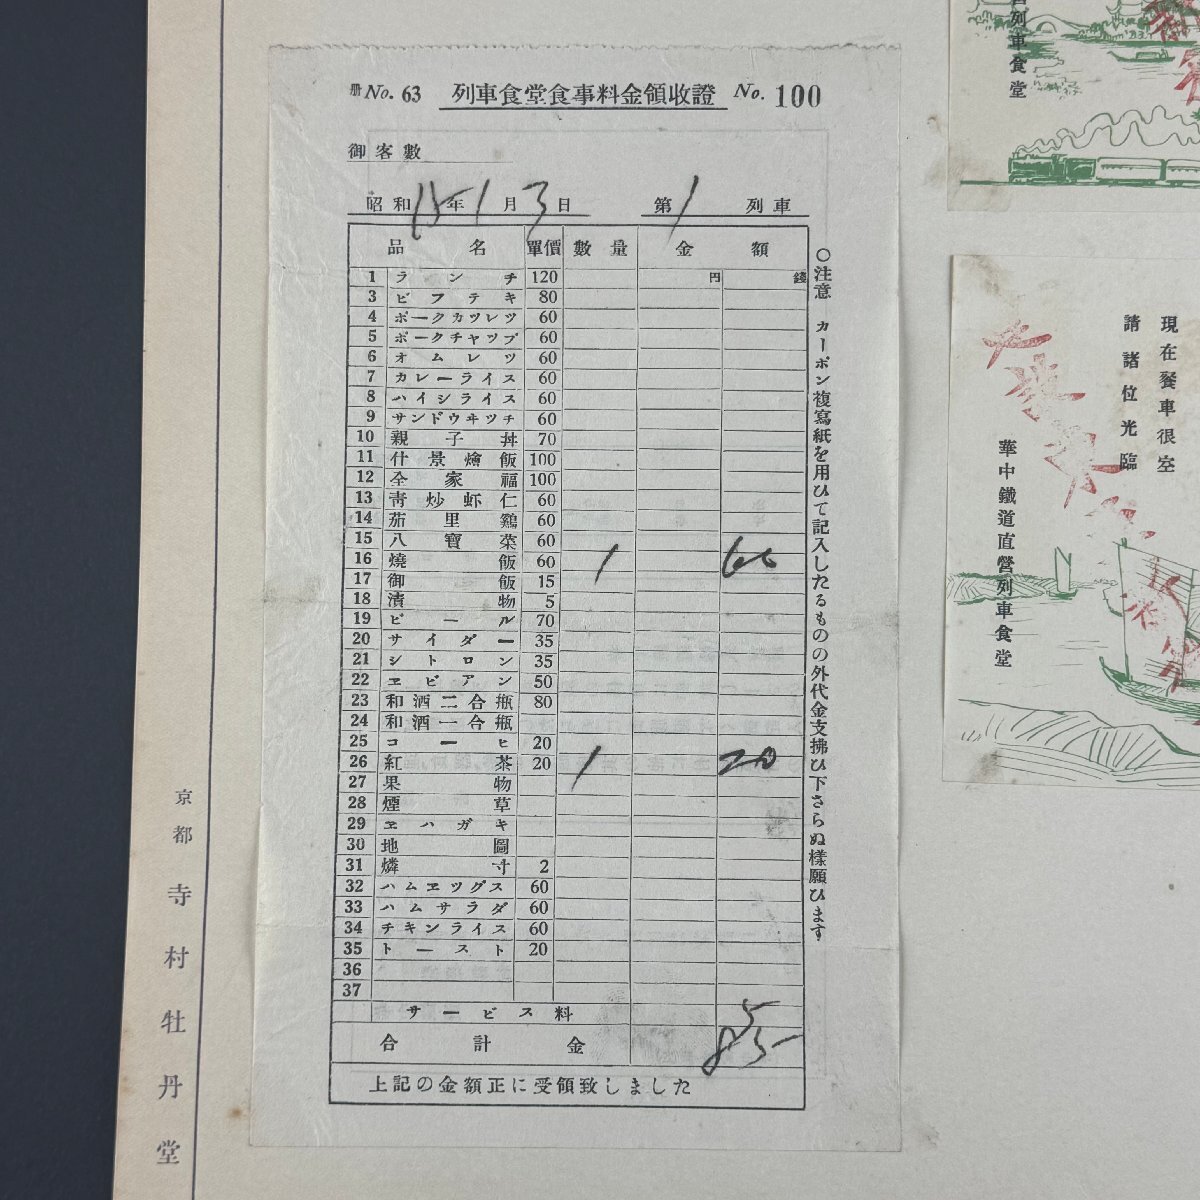 册 No. 63 列車食堂食事料金領收證 No. 100
御客數
昭和 15年 1月 3日 第 1 列車
品名 單價 數量 金額
1 ランチ 120 円 錢
3 ビフテキ 80
4 ポークカツレツ 60
5 ポークチャツプ 60
6 オムレツ 60
7 カレーライス 60
8 ハイシライス 60
9 サンドウヰツチ 60
10 親子丼 70
11 什景燴飯 100
12 全家福 100
13 靑炒虾仁 60
14 茄里鷄 60
15 八寶菜 60
16 燒飯 60 1 60
17 御飯 15
18 漬物 5
19 ビール 70
20 サイダー 35
21 シトロン 35
22 ヱビアン 50
23 和酒二合瓶 80
24 和酒一合瓶
25 コーヒ 20
26 紅茶 20 1 20
27 果物
28 煙草
29 ヱハガキ
30 地圖
31 燐寸 2
32 ハムヱツグス 60
33 ハムサラダ 60
34 チキンライス 60
35 トースト 20
36
37
サービス料 5
合計金 85
上記の金額正に受領致しました
○注意 カーボン複寫紙を用ひて記入したるものの外代金支拂ひ下さらぬ樣願ひます
京都 寺村牡丹堂
營列車食堂
現在餐車很空
請諸位光臨
華中鐵道直營列車食堂